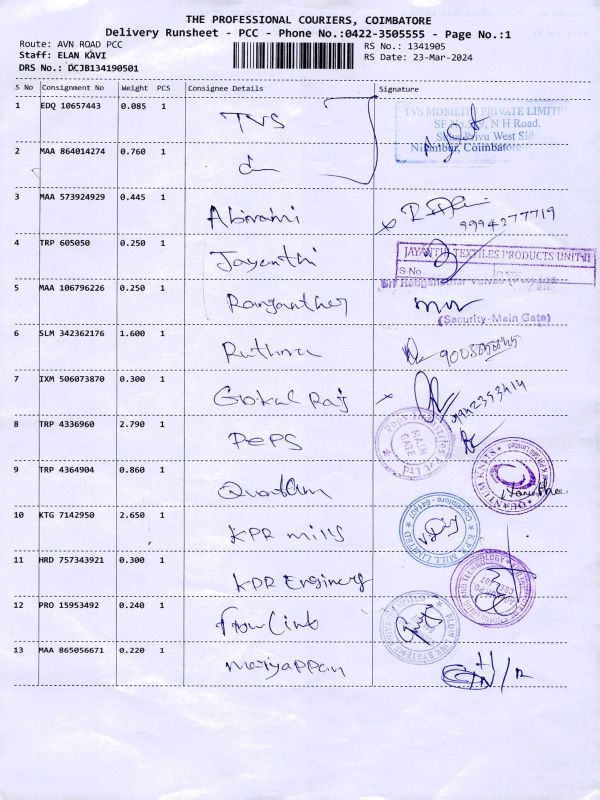 THE PROFESSIONAL COURIERS, COIMBATORE
Delivery Runsheet - PCC - Phone No.:0422-3505555 - Page No.:1
Route: AVN ROAD PCC
RS No.: 1341905
Staff: ELAN KAVI
RS Date: 23-Mar-2024
DRS No.: DCJB134190501
S No Consignment No Weight PCS Consignee Details Signature
1 EDQ 10657443 0.085 1 TVS
TVS MOBILITY PRIVATE LIMIT
N H Road,
West Side
Nilambur, Coimbatore
2 MAA 864014274 0.760 1
3 MAA 573924929 0.445 1 Abirami
9994277719
4 TRP 605050 0.250 1 Jayanthi
JAYANTHI TEXTILES PRODUCTS UNIT-II
S No DATE
5 MAA 106796226 0.250 1 Ranganther
(Security-Main Gate)
6 SLM 342362176 1.600 1 Ruthra
7 IXM 506073870 0.300 1 Gokul Raj
8 TRP 4336960 2.790 1 PePS
MAIN GATE
9 TRP 4364904 0.860 1 Quantum
10 KTG 7142950 2.650 1 KPR mills
K.P.R. MILL LIMITED Coimbatore - 641407
11 HRD 757343921 0.300 1 KPR Enginery
12 PRO 15953492 0.240 1 Flow Link
13 MAA 865056671 0.220 1 mariyappan